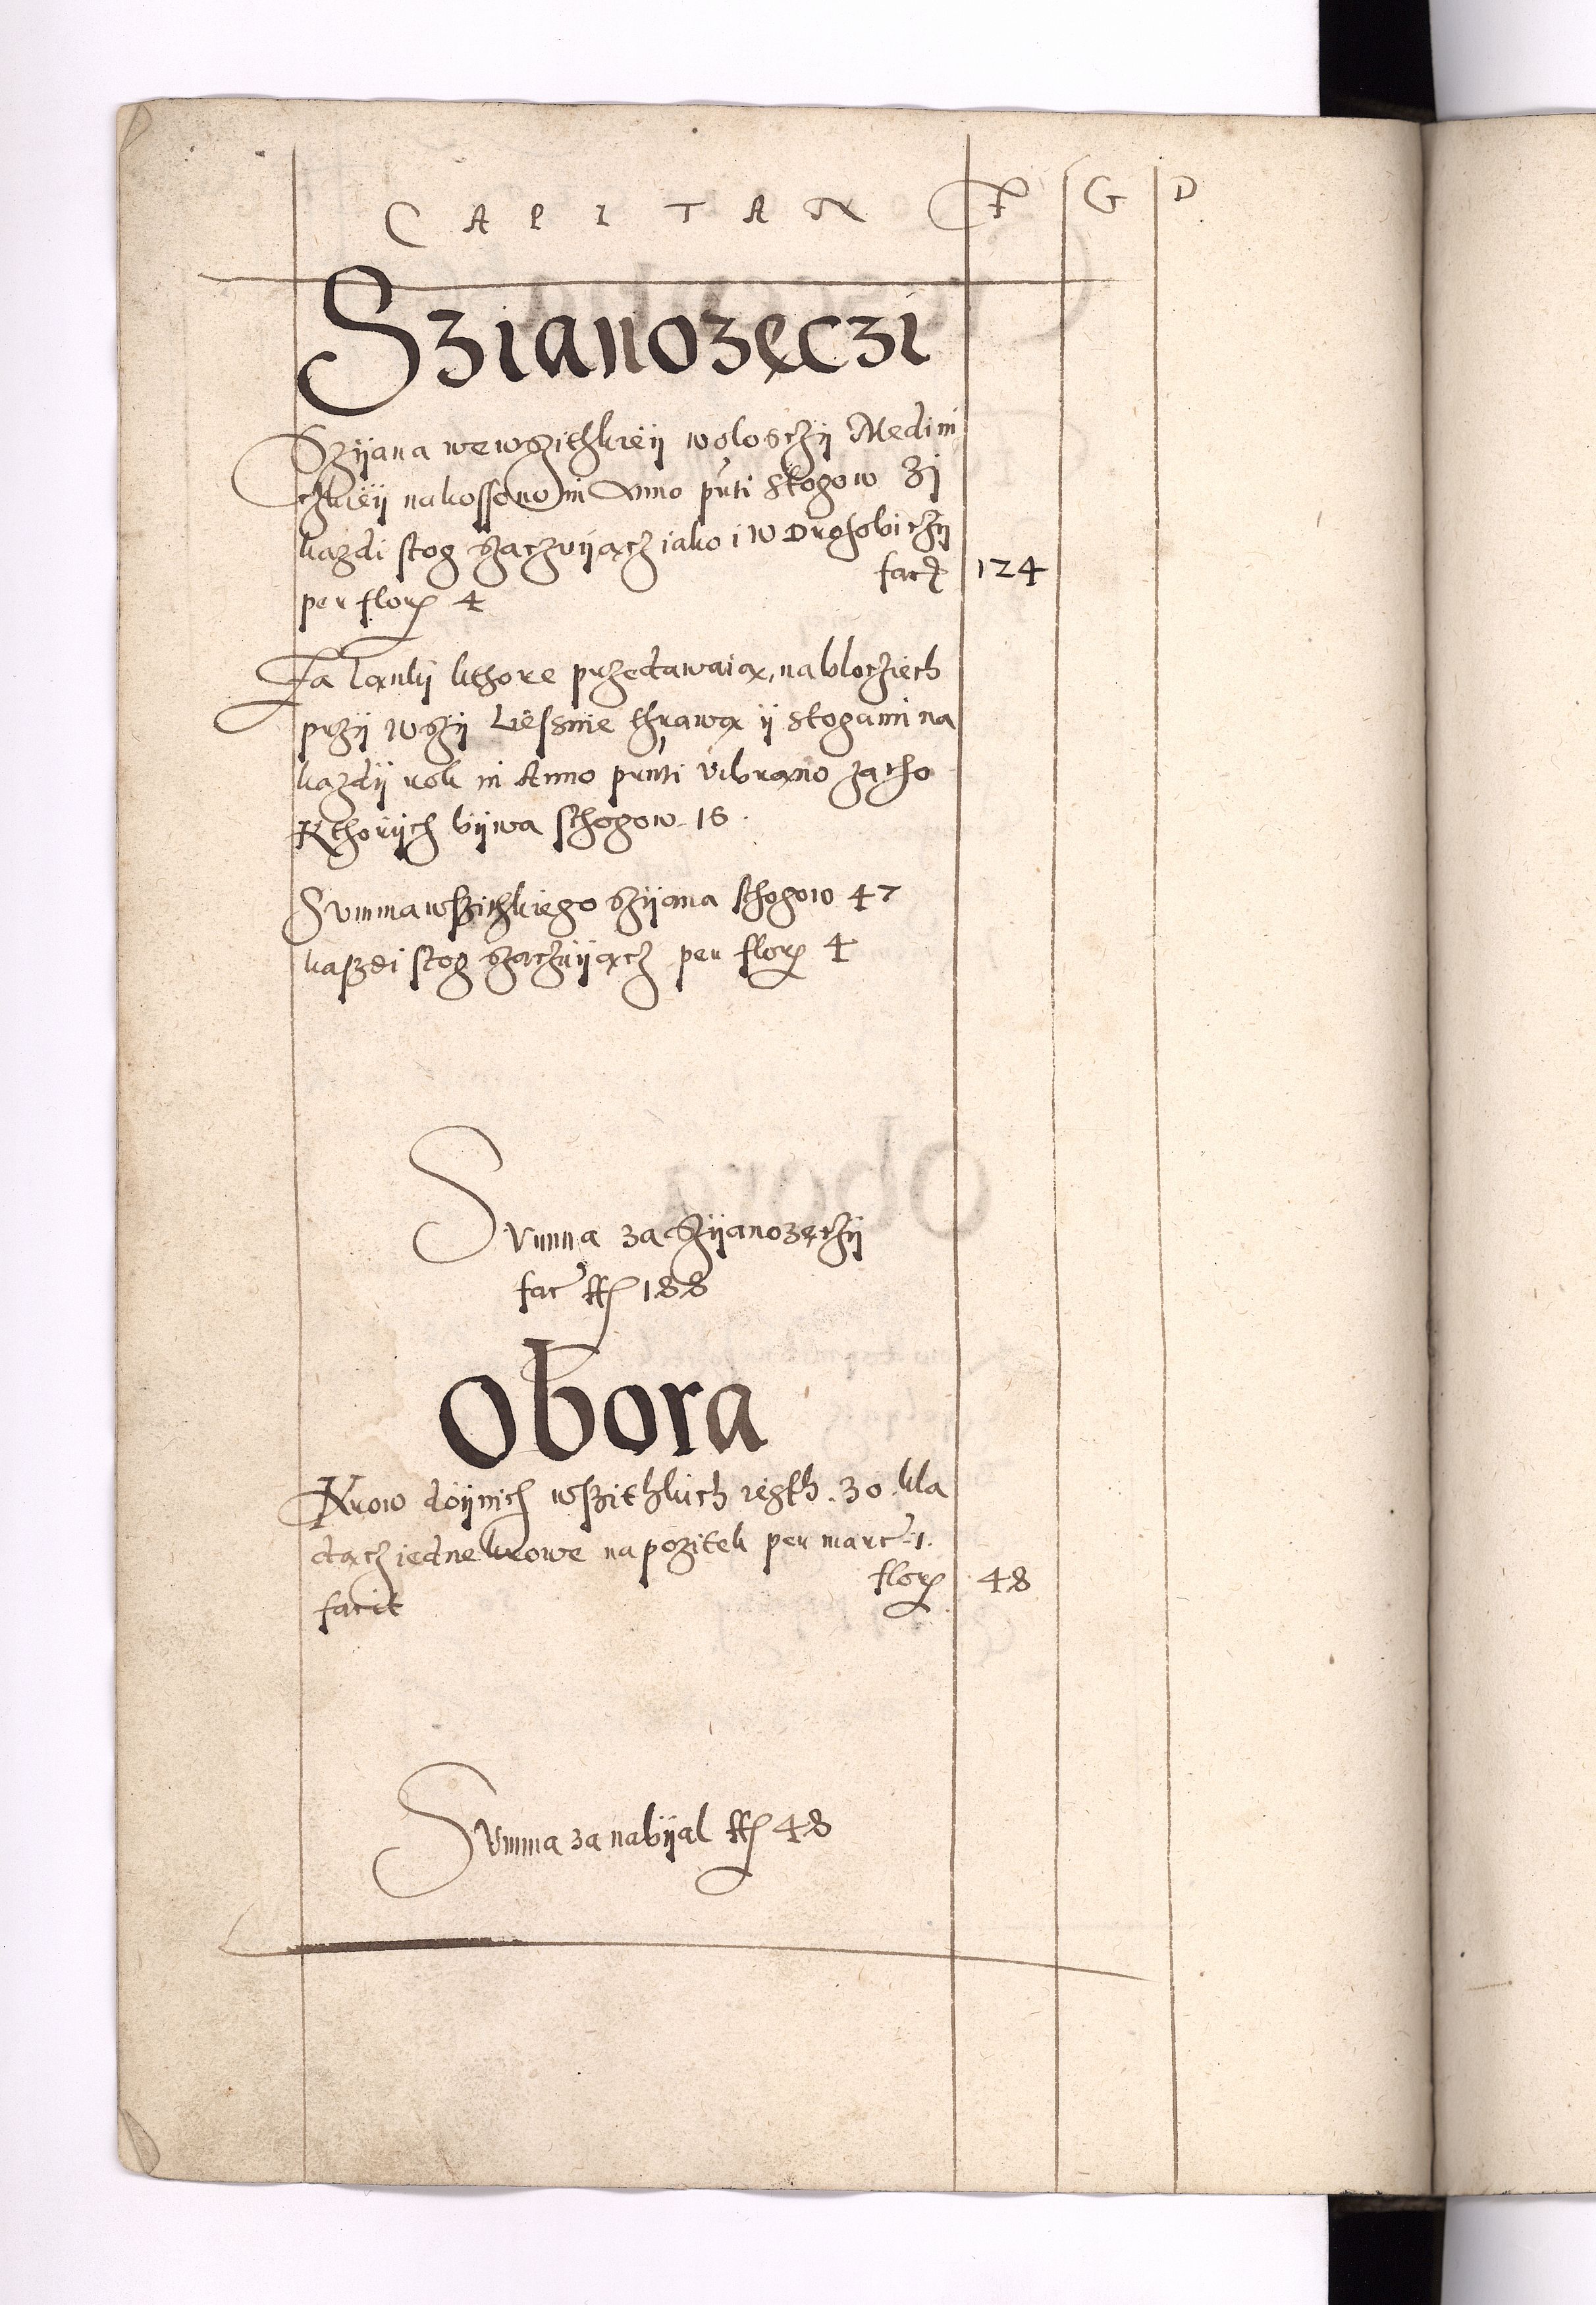 CAPITAN F G D
Szianozęczi
Szijana wewszithkieÿ woloscżÿ Medini
czkieÿ nakossono in Anno pnti Stogow 31
kazdi stog szaczuÿącz iako i w Drohobiczÿ
facit 124
per flor 4
Za Lanki kthore przedawaią, na blocziech
przÿ wszÿ Liessnie thrawą ÿ stogami na
kazdÿ rok in Anno pnti vibrano za tho
Kthorÿch bÿwa sthogow 16.
Summa wszithkiego szÿana sthogow 47
kaszdi stog szaczuÿącz per flor 4
Summa za szÿanozęczÿ
fac fl 188
Obora
Krow doÿnich wszithkich iesth. 30. kla
dącz iedne krowe na pozitek per marc. 1.
flor 48
facit
Summa za nabÿal fl 48